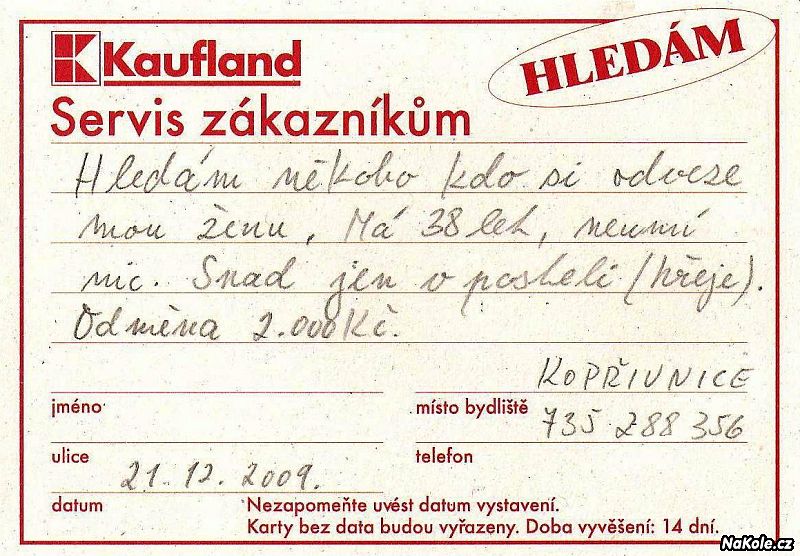 Kaufland
HLEDÁM
Servis zákazníkům
Hledám někoho kdo si odveze
mou ženu, Má 38 let, neumí
nic. Snad jen v posteli (hřeje).
Odměna 2.000Kč.
KOPŘIVNICE
jméno
místo bydliště
735 288 356
ulice
telefon
21. 12. 2009.
datum
Nezapomeňte uvést datum vystavení.
Karty bez data budou vyřazeny. Doba vyvěšení: 14 dní.
NaKole.cz